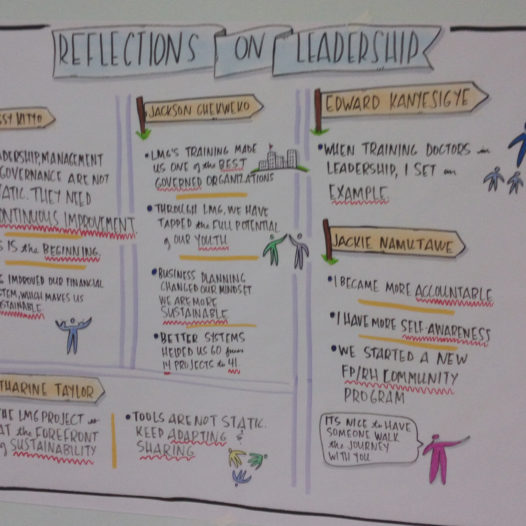 REFLECTIONS ON LEADERSHIP
JACKSON CHEKWEKO
• LMG'S TRAINING MADE
US ONE of the BEST
GOVERNED ORGANIZATIONS
• THROUGH LMG, WE HAVE
TAPPED the FULL POTENTIAL
of OUR YOUTH
• BUSINESS PLANNING
CHANGED OUR MINDSET
WE ARE MORE
SUSTAINABLE
• BETTER SYSTEMS
HELPED US GO from
14 PROJECTS to 41
EDWARD KANYESIGYE
• WHEN TRAINING DOCTORS in
LEADERSHIP, I SET an
EXAMPLE
JACKIE NAMUTAWE
• I BECAME MORE ACCOUNTABLE
• I HAVE MORE SELF-AWARENESS
• WE STARTED A NEW
FP/RH COMMUNITY
PROGRAM
ITS NICE to HAVE
SOMEONE WALK
the JOURNEY
WITH YOU
MANAGEMENT
GOVERNANCE ARE NOT
THEY NEED
CONTINUOUS IMPROVEMENT
IS the BEGINNING
IMPROVED OUR FINANCIAL
WHICH MAKES US
THARINE TAYLOR
THE LMG PROJECT is
AT the FOREFRONT
of SUSTAINABILITY
• TOOLS ARE NOT STATIC.
KEEP ADAPTING &
SHARING